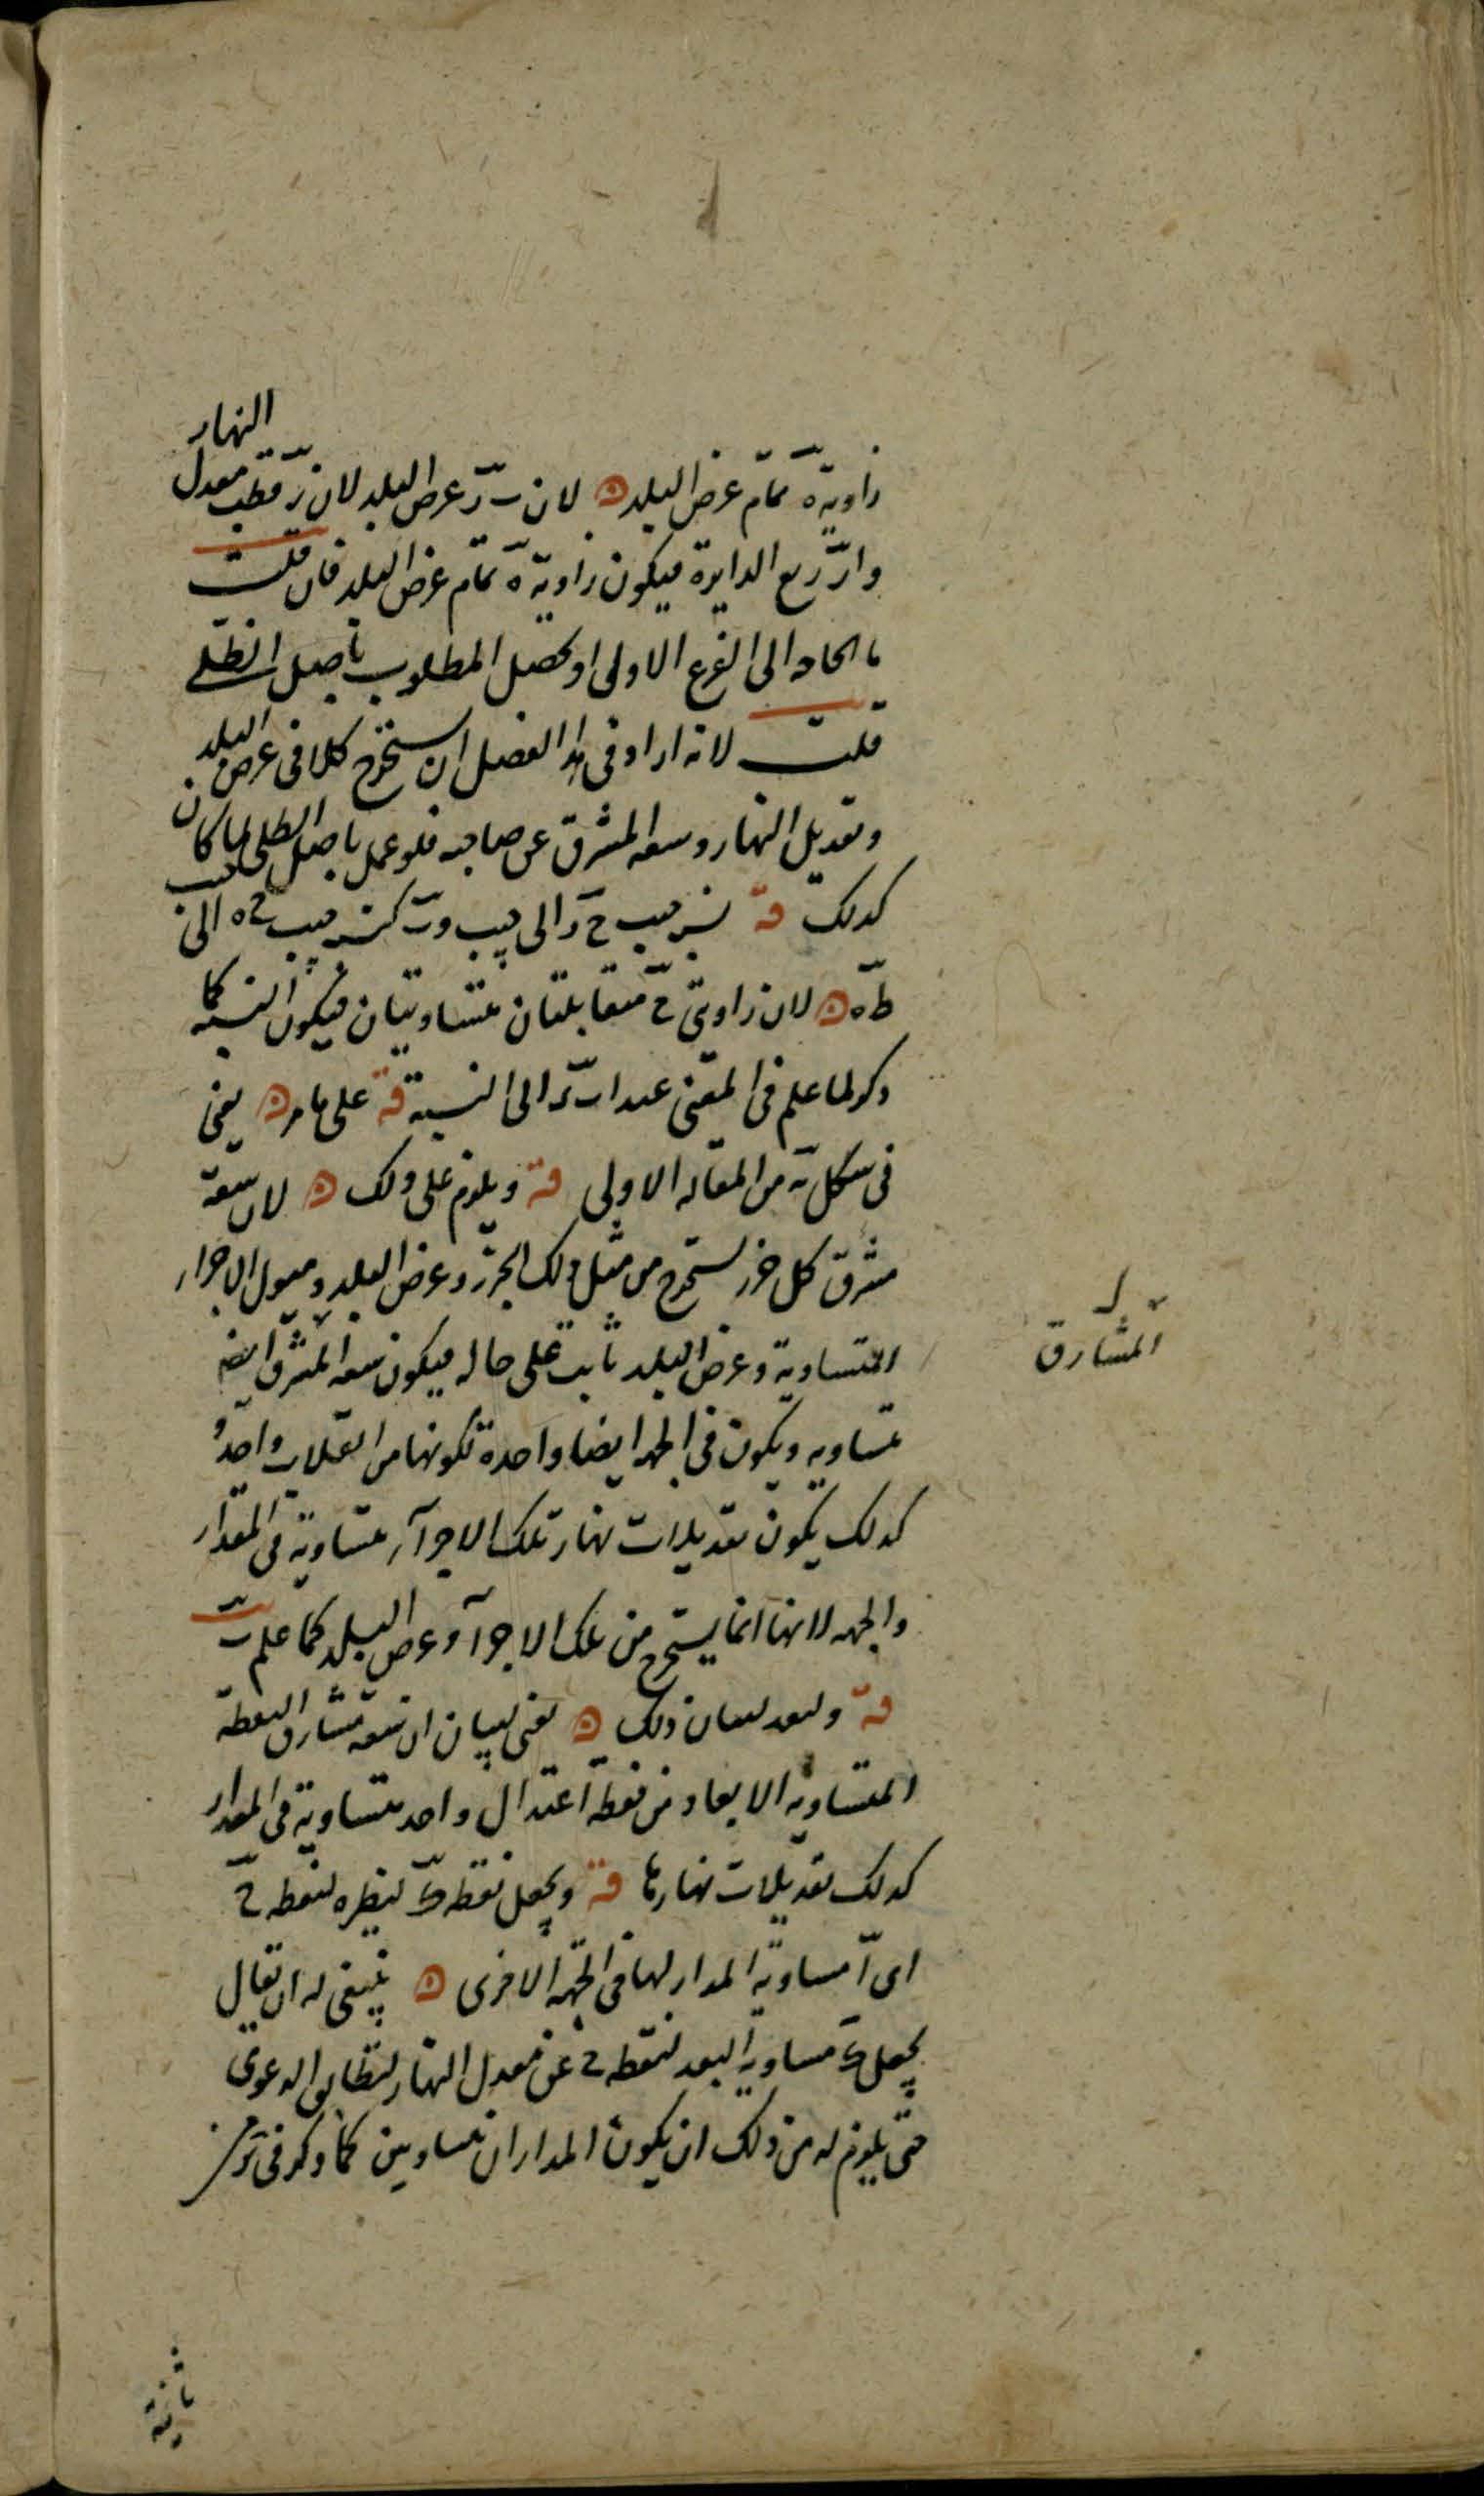 زاوية ه تمام عرض البلد ۵ لان ب ر عرض البلد لان ر قطب معدل النهار
وا ر ربع الدايرة فيكون زاوية ه تمام عرض البلد فان قلت
ما الحاجه الى الفرع الاولى او يحصل المطلوب باصل الظلي
قلت لانه اراد فى هذا الفصل ان يستخرج كلا فى عرض البلد
وتعديل النهار وسعه المشرق عن صاحبه فلو عمل باصل الظلى لما كان
كذلك قه نسبه جيب ح د الى جيب د ب كنسبه جيب ح ه الى جيب
ط ه ۵ لان زاويتى ح متقابلتان متساويتان فيكون النسبه كما
ذكر لما علم فى المغنى
الى النسبه قه على ما مر ۵ يعنى
فى شكل يه من المقاله الاولى قه ويلزم على ذلك ۵ لان سعة
مشرق كل جزء يستخرج من ميل ذلك الجزء وعرض البلد وميول الاجزاء
المتساوية وعرض البلد ثابت على حاله فيكون سعه المشرق ايضا
متساويه ويكون فى الجهه ايضا واحدة لكونها من
واحد و
كذلك يكون تعديلات نهار تلك الاجزآء متساوية فى المقدار
والجهه لانها انما يستخرج من تلك الاجزآ وعرض البلد كما علمت
قه ولنعد لبيان ذلك ۵ يعنى لبيان ان سعة مشارق النقطة
المتساويه الابعاد من نقطه اعتدال واحد متساوية فى المقدار
كذلك تعديلات نهارها قه ويجعل نقطه ط نظيره لنقطه ح
اى آ مساوية المدار لها فى الجهه الاخرى ۵ ينبغى له ان يقال
يجعل ط مساوية البعد لنقطه ح عن معدل النهار لتطابق الدعوى
حتى يلزم له من ذلك ان يكون المداران متساويين كما ذكر فى
المشارق
ثانية